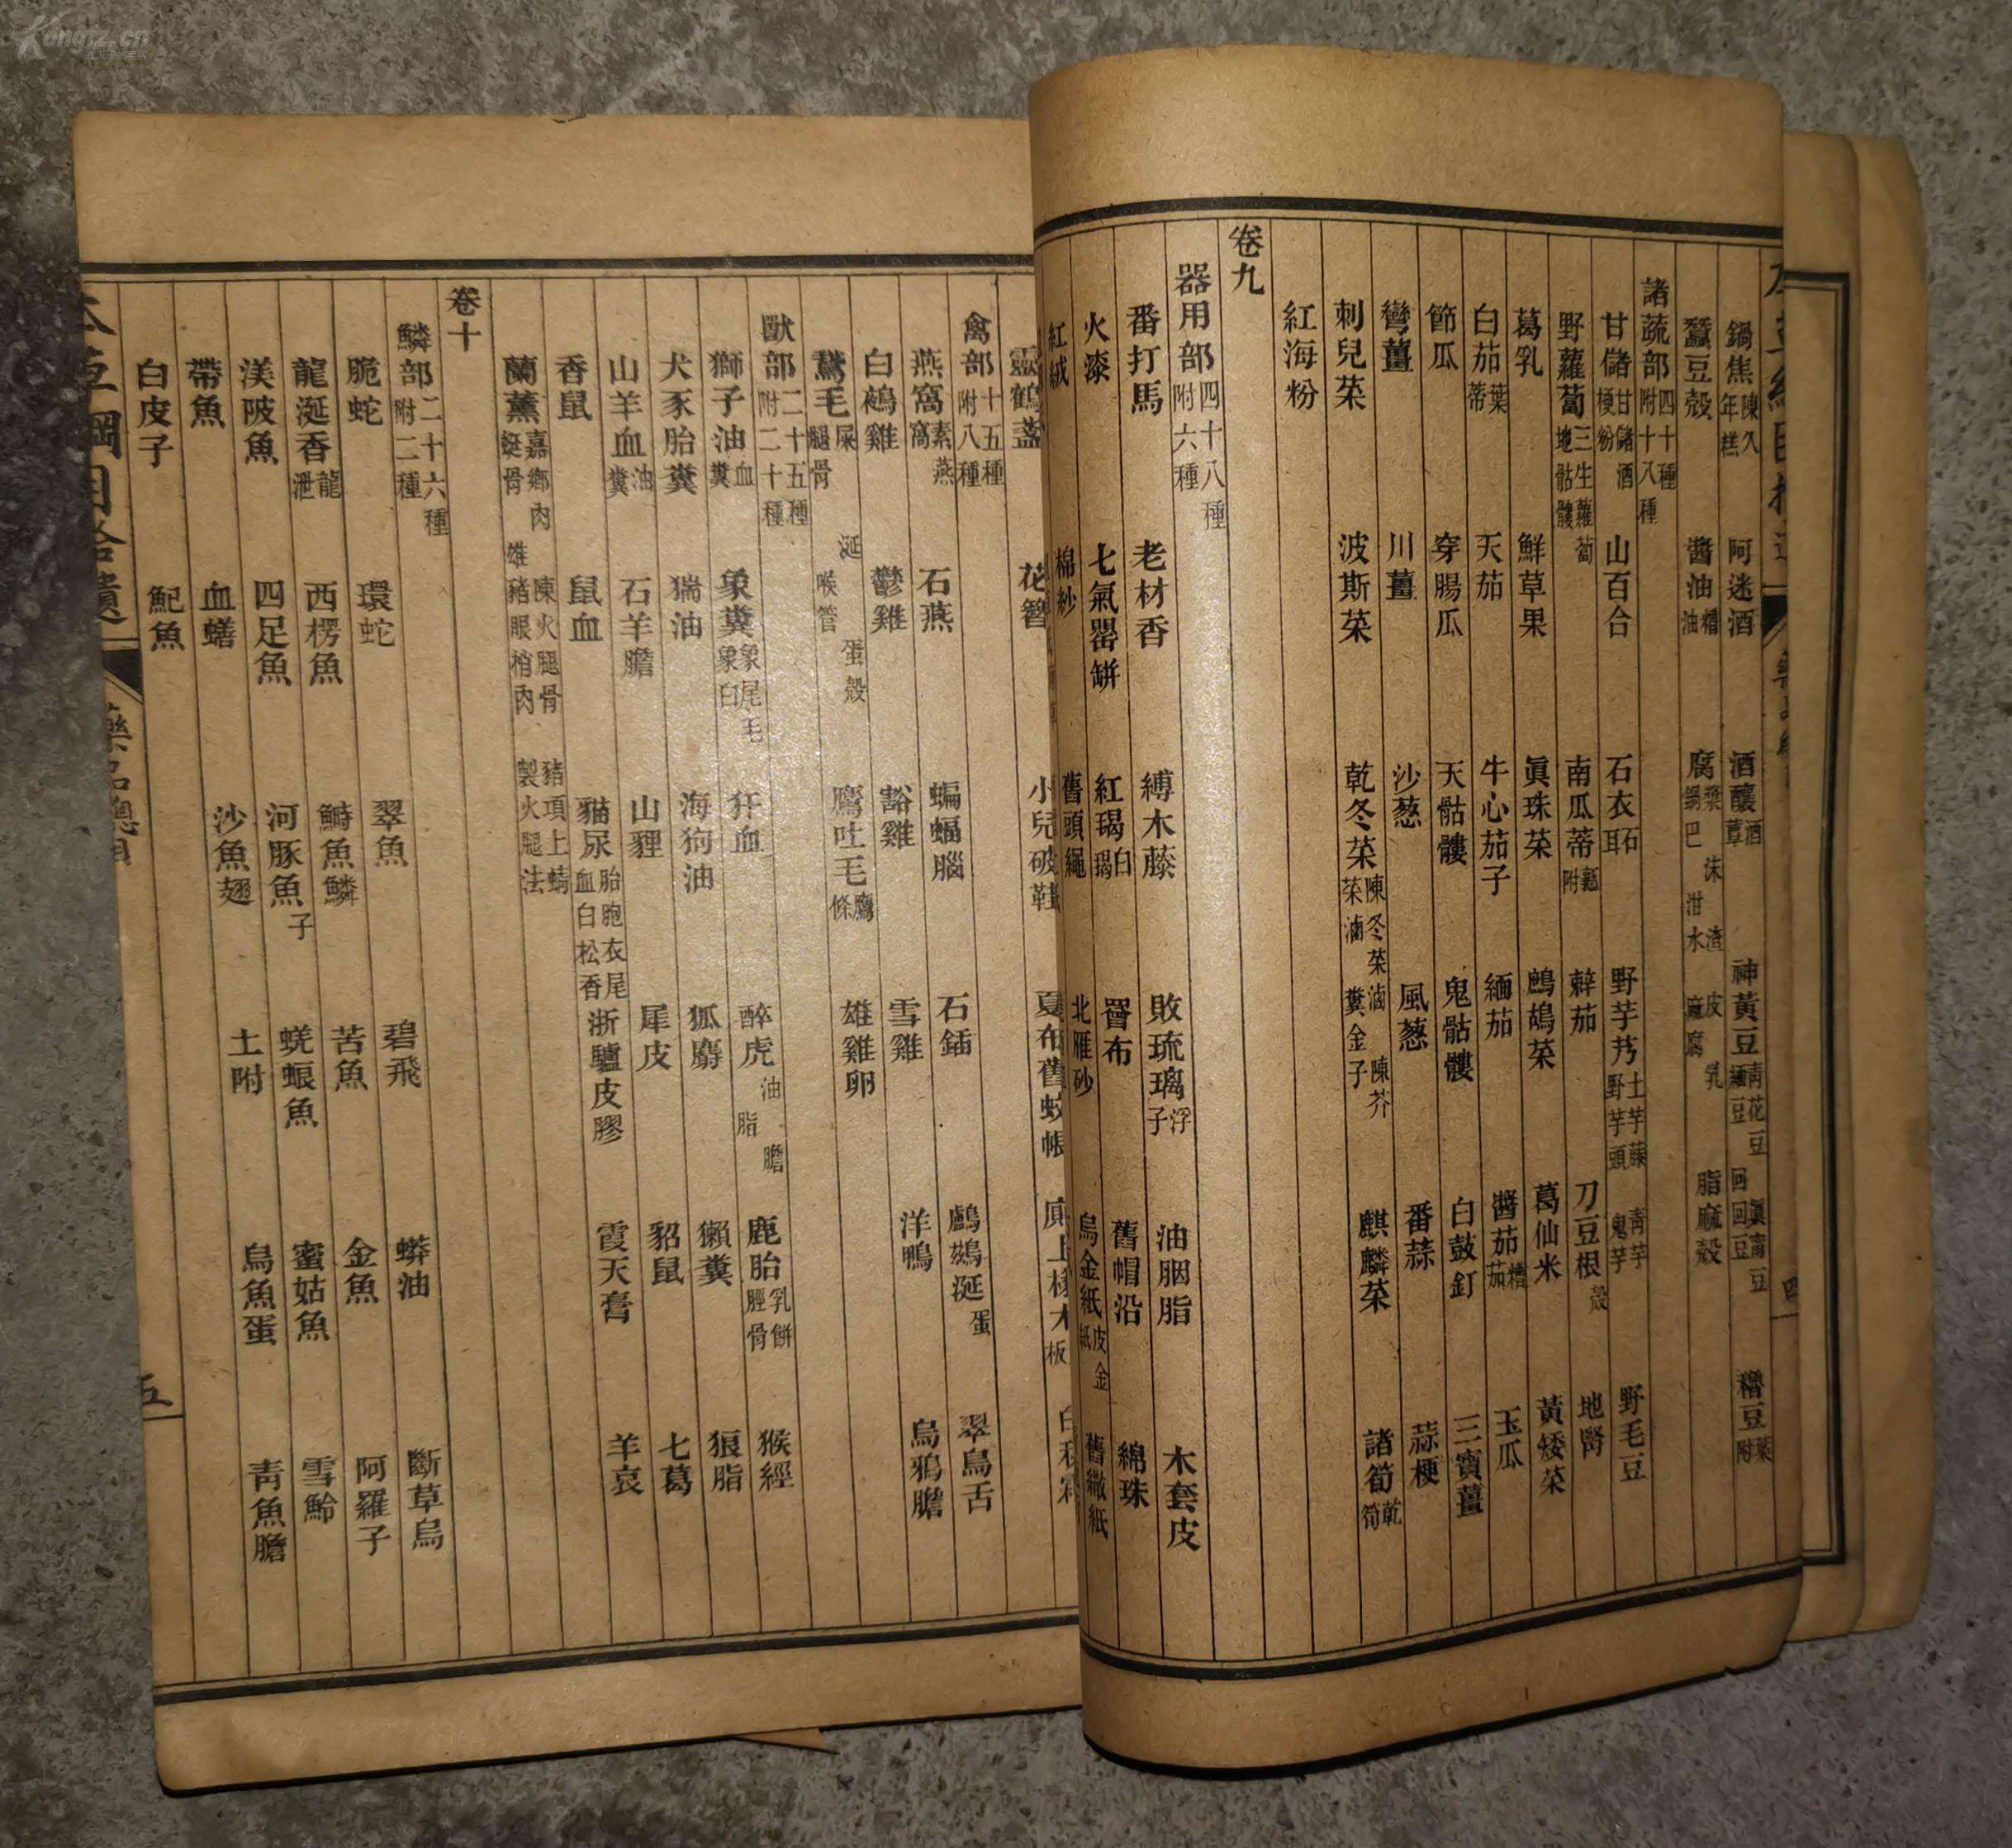 鍋焦陳久年糕 阿迷酒 酒釀酒藠 神黃豆青花豆緬豆回回豆 穭豆葉附
蠶豆殼 醬油糟油 腐漿鍋巴沫泔水渣皮麻腐乳 脂麻殼
諸蔬部四十種附十八種
甘儲甘儲酒梗粉 山百合 石衣石耳 野芋艿土芋藤野芋頭青芋鬼芋 野毛豆
野蘿蔔三生蘿蔔地骷髏 南瓜蒂瓤附 辣茄 刀豆根殼 地腎
葛乳 鮮草果 眞珠菜 鷓鴣菜 葛仙米 黃矮菜
白茄葉蒂 天茄 牛心茄子 緬茄 醬茄糟茄 玉瓜
節瓜 穿腸瓜 天骷髏 鬼骷髏 白鼓釘 三寶薑
彎薑 川薑 沙葱 風葱 番蒜 蒜梗
刺兒菜 波斯菜 乾冬菜陳冬菜滷菜滷陳芥糞金子 麒麟菜 諸筍乾筍
紅海粉
卷九
器用部四十八種附六種
番打馬 老材香 縛木藤 敗琉璃浮子 油胭脂 木套皮
火漆 七氣罌缾 紅毼白毼 罾布 舊帽沿 綿珠
紅絨 棉紗 舊頭繩 北雁砂 烏金紙皮金紙 舊繖紙
靈鶴盞 花簪 小兒破鞋 夏布舊蚊帳
禽部十五種附八種
燕窩素燕窩 石燕 蝙蝠腦 石鍤 鸕鷀涎蛋 翠鳥舌
白鵫雞 鬱雞 豁雞 雪雞 洋鴨 烏鴉膽
鵞毛屎腿骨涎喉管蛋殼 鷹吐毛鷹條 雄雞卵
獸部二十五種附二十種
獅子油血糞 象糞象尾毛象白 狂血 醉虎油脂膽 鹿胎乳餅脛骨 猴經
犬豕胎糞 猯油 海狗油 狐麝 獺糞 狼脂
山羊血油糞 石羊膽 山貍 犀皮 貂鼠 七葛
香鼠 鼠血 貓尿胎胞衣尾血白松香 浙驢皮膠 霞天膏 羊哀
蘭薰嘉鄉肉蜓骨陳火腿骨雄豬眼梢肉豬項上蜻製火腿法
卷十
鱗部二十六種附二種
脆蛇 環蛇 翠魚 碧飛 蟒油 斷草烏
龍涎香龍泄 西楞魚 鰣魚鱗 苦魚 金魚 阿羅子
渼陂魚 四足魚 河豚魚子 蜣蜋魚 蜜姑魚 雪鮯
帶魚 血鱔 沙魚翅 土附 烏魚蛋 青魚膽
白皮子 魢魚
本草綱目拾遺 藥名總目 五